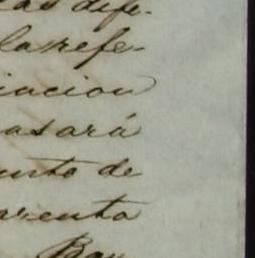 las dife-
la refe-
iacion
asará
unto de
arenta
Bau